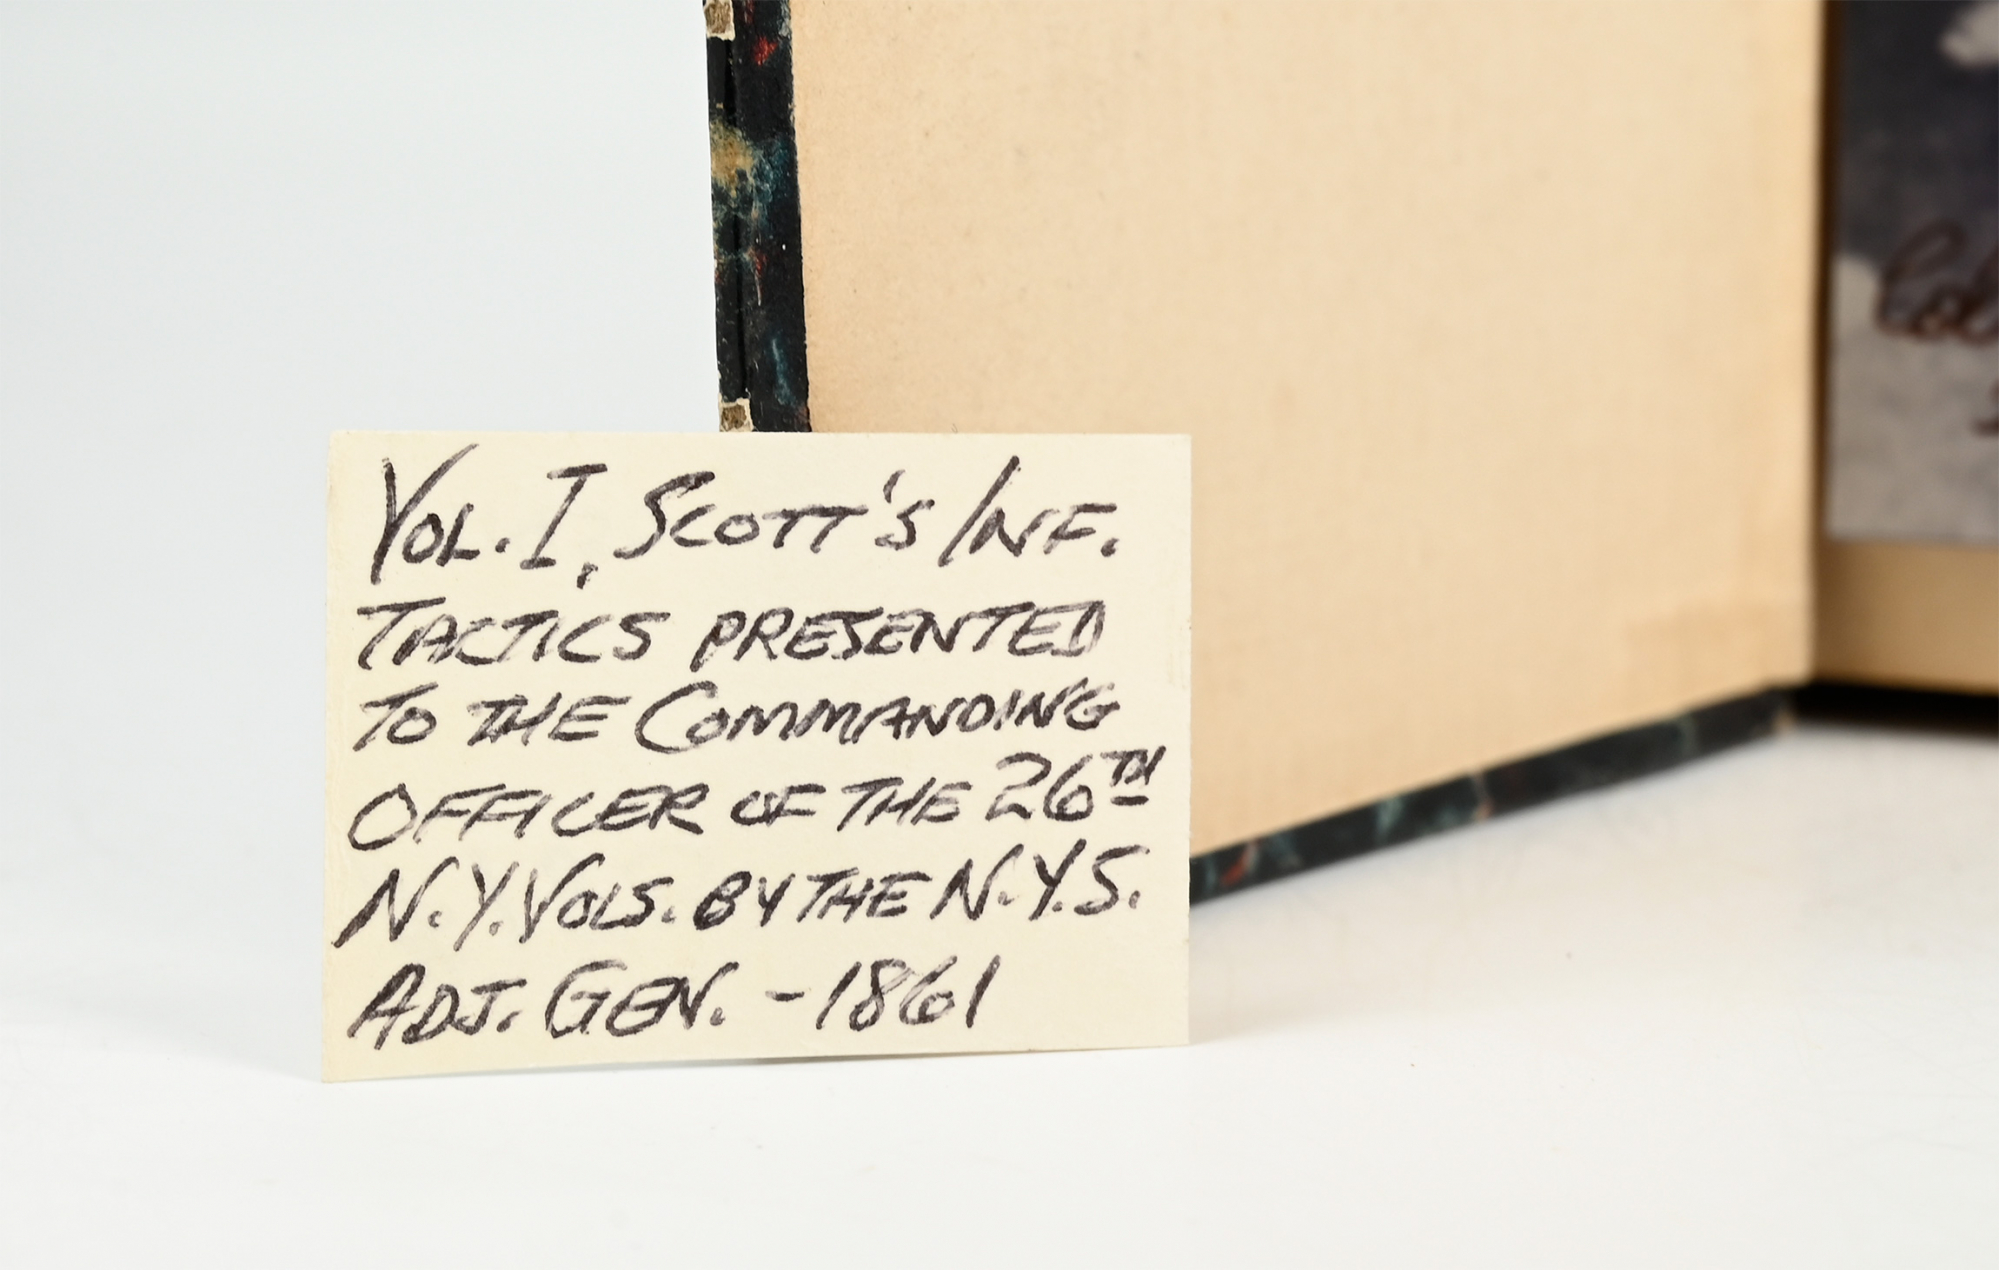 Vol. I, Scott's Inf.
Tactics presented
to the Commanding
Officer of the 26th
N.Y. Vols. by the N.Y.S.
Adj. Gen. - 1861